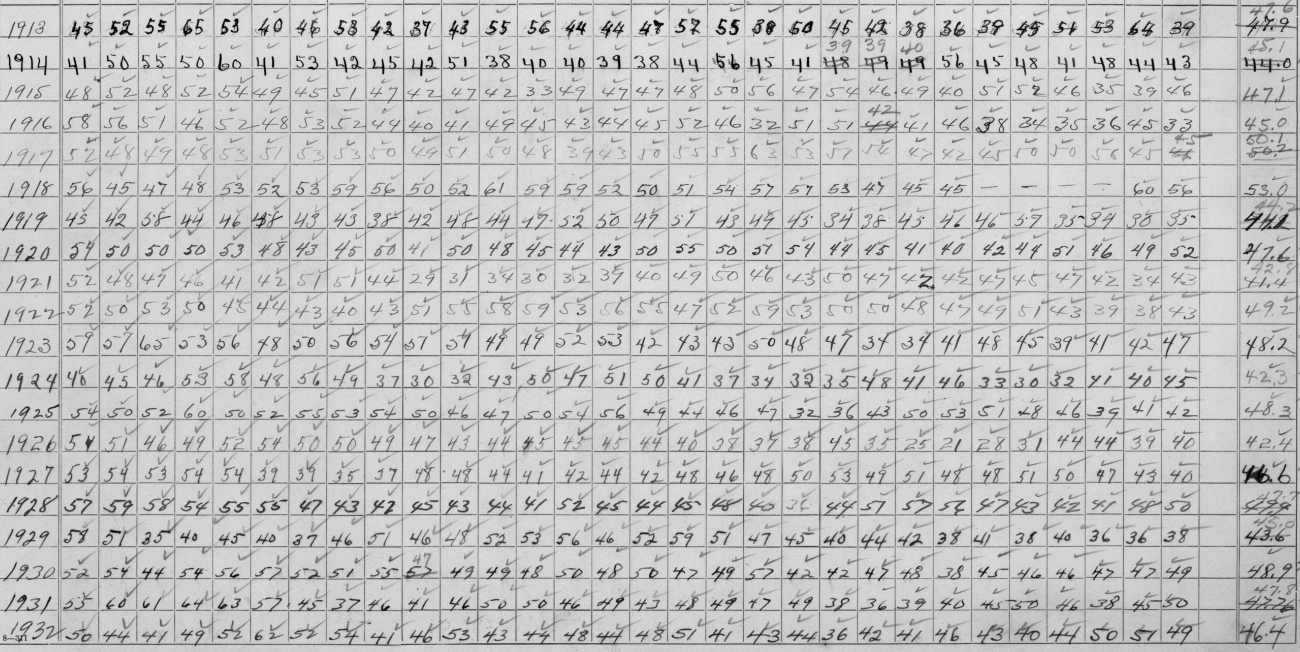 47.6
1913 45 52 55 65 53 40 46 53 42 37 43 55 56 44 44 47 57 55 50 45 42 38 36 39 45 51 53 64 39 47.9
39 39 40 45.1
1914 41 50 55 50 60 41 53 42 45 42 51 38 40 40 39 38 44 56 45 41 48 49 49 56 45 48 41 48 44 43 44.0
1915 48 52 48 52 54 49 45 51 47 42 47 42 33 49 47 47 48 50 56 47 54 46 49 40 51 52 46 35 39 46 47.1
42
1916 58 56 51 46 52 48 53 52 44 40 41 49 45 43 44 45 52 46 32 51 51 44 41 46 38 34 35 36 45 33 45.0
45 50.1
1917 52 48 49 48 53 51 53 53 50 49 51 50 48 39 43 50 55 55 63 53 57 54 47 42 45 50 50 56 45 50.2
1918 56 45 47 48 53 52 53 59 56 50 52 61 59 59 52 50 51 54 57 57 53 47 45 45 — — — — 60 56 53.0
44.2
1919 45 42 58 44 46 58 49 43 38 42 48 44 47 52 50 47 51 43 49 45 34 38 45 46 46 57 35 34 38 35
1920 54 50 50 50 53 48 43 45 50 41 50 48 45 44 43 50 55 50 51 54 44 45 41 40 42 44 51 46 49 52 47.6
42.8
1921 52 48 47 46 41 42 51 51 44 29 31 34 30 32 39 40 49 50 46 43 50 47 42 42 47 45 47 42 34 43 41.4
1922 52 50 53 50 45 44 43 40 43 51 55 58 59 53 56 55 47 52 59 53 50 50 48 47 49 51 43 39 38 43 49.2
1923 59 57 65 53 56 48 50 56 54 57 54 49 49 52 53 42 43 43 50 48 47 34 34 41 48 45 39 41 42 47 48.2
1924 40 45 46 53 58 48 56 49 37 30 32 43 50 47 51 50 41 37 34 32 35 48 41 46 33 30 32 41 40 45 42.3
1925 54 50 52 60 50 52 55 53 54 50 46 47 50 54 56 49 44 46 47 32 36 43 50 53 51 48 46 39 41 42 48.3
1926 54 51 46 49 52 54 50 50 49 47 43 44 45 45 45 44 40 38 37 38 45 35 25 21 28 31 44 44 39 40 42.4
1927 53 54 53 54 54 39 39 35 37 48 48 44 41 42 44 42 48 46 48 50 53 49 51 48 48 51 50 47 43 40 46.6
47.7
1928 57 59 58 54 55 55 47 43 42 45 43 44 41 52 45 44 45 48 40 36 44 51 57 56 47 43 42 41 48 50 47.4
43.0
1929 58 51 35 40 45 40 37 46 51 46 48 52 53 56 46 52 59 51 47 45 40 44 42 38 41 38 40 36 36 38 43.6
47
1930 52 54 44 54 56 57 52 51 55 57 49 49 48 50 48 50 47 49 57 42 42 47 48 38 45 46 46 47 47 49 48.9
47.8
1931 55 60 61 64 63 57 45 37 46 41 46 50 50 46 49 43 48 49 47 49 38 36 39 40 45 50 46 38 45 50
1932 50 44 41 49 52 62 52 54 41 46 53 43 44 48 44 48 51 41 43 44 36 42 41 46 43 40 44 50 51 49 46.4